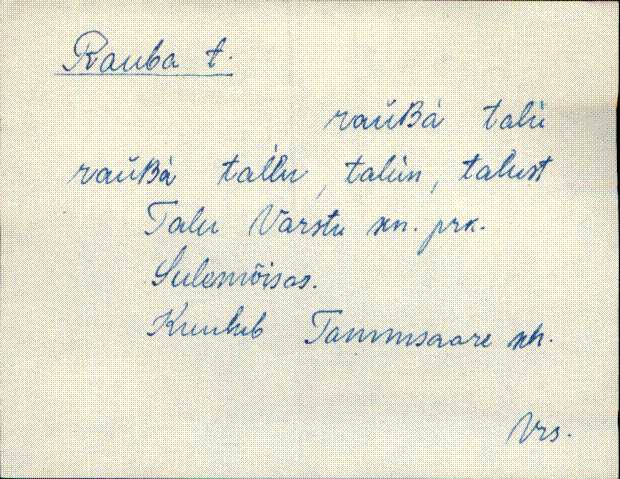 Rauba t.
raùʙà talù
raùʙà tàllu, talùn, talust
Talu Varstu kn. prk.
Sulemõisas.
Kuulub Tammsaare kh.
Vrs.